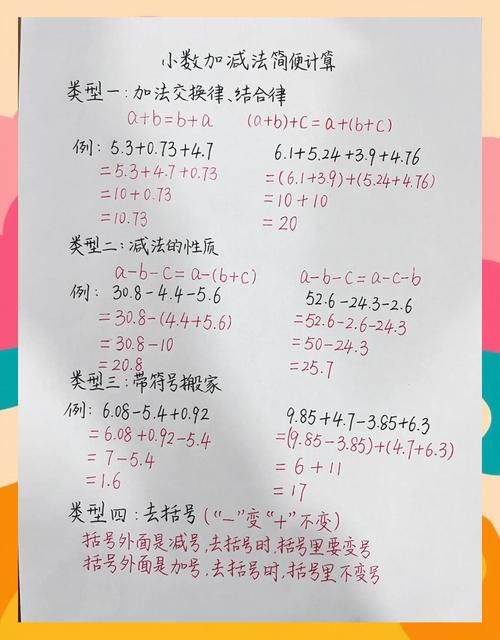 小数加减法简便计算
类型一:加法交换律、结合律
a+b=b+a (a+b)+c=a+(b+c)
例: 5.3+0.73+4.7 6.1+5.24+3.9+4.76
=5.3+4.7+0.73 =(6.1+3.9)+(5.24+4.76)
=10+0.73 =10+10
=10.73 =20
类型二:减法的性质
a-b-c=a-(b+c) a-b-c=a-c-b
例: 30.8-4.4-5.6 52.6-24.3-2.6
=30.8-(4.4+5.6) =52.6-2.6-24.3
=30.8-10 =50-24.3
=20.8 =25.7
类型三:带符号搬家
例: 6.08-5.4+0.92 9.85+4.7-3.85+6.3
=6.08+0.92-5.4 =(9.85-3.85)+(4.7+6.3)
=7-5.4 =6+11
=1.6 =17
类型四:去括号(“-”变“+”不变)
括号外面是减号,去括号时,括号里要变号
括号外面是加号,去括号时,括号里不变号